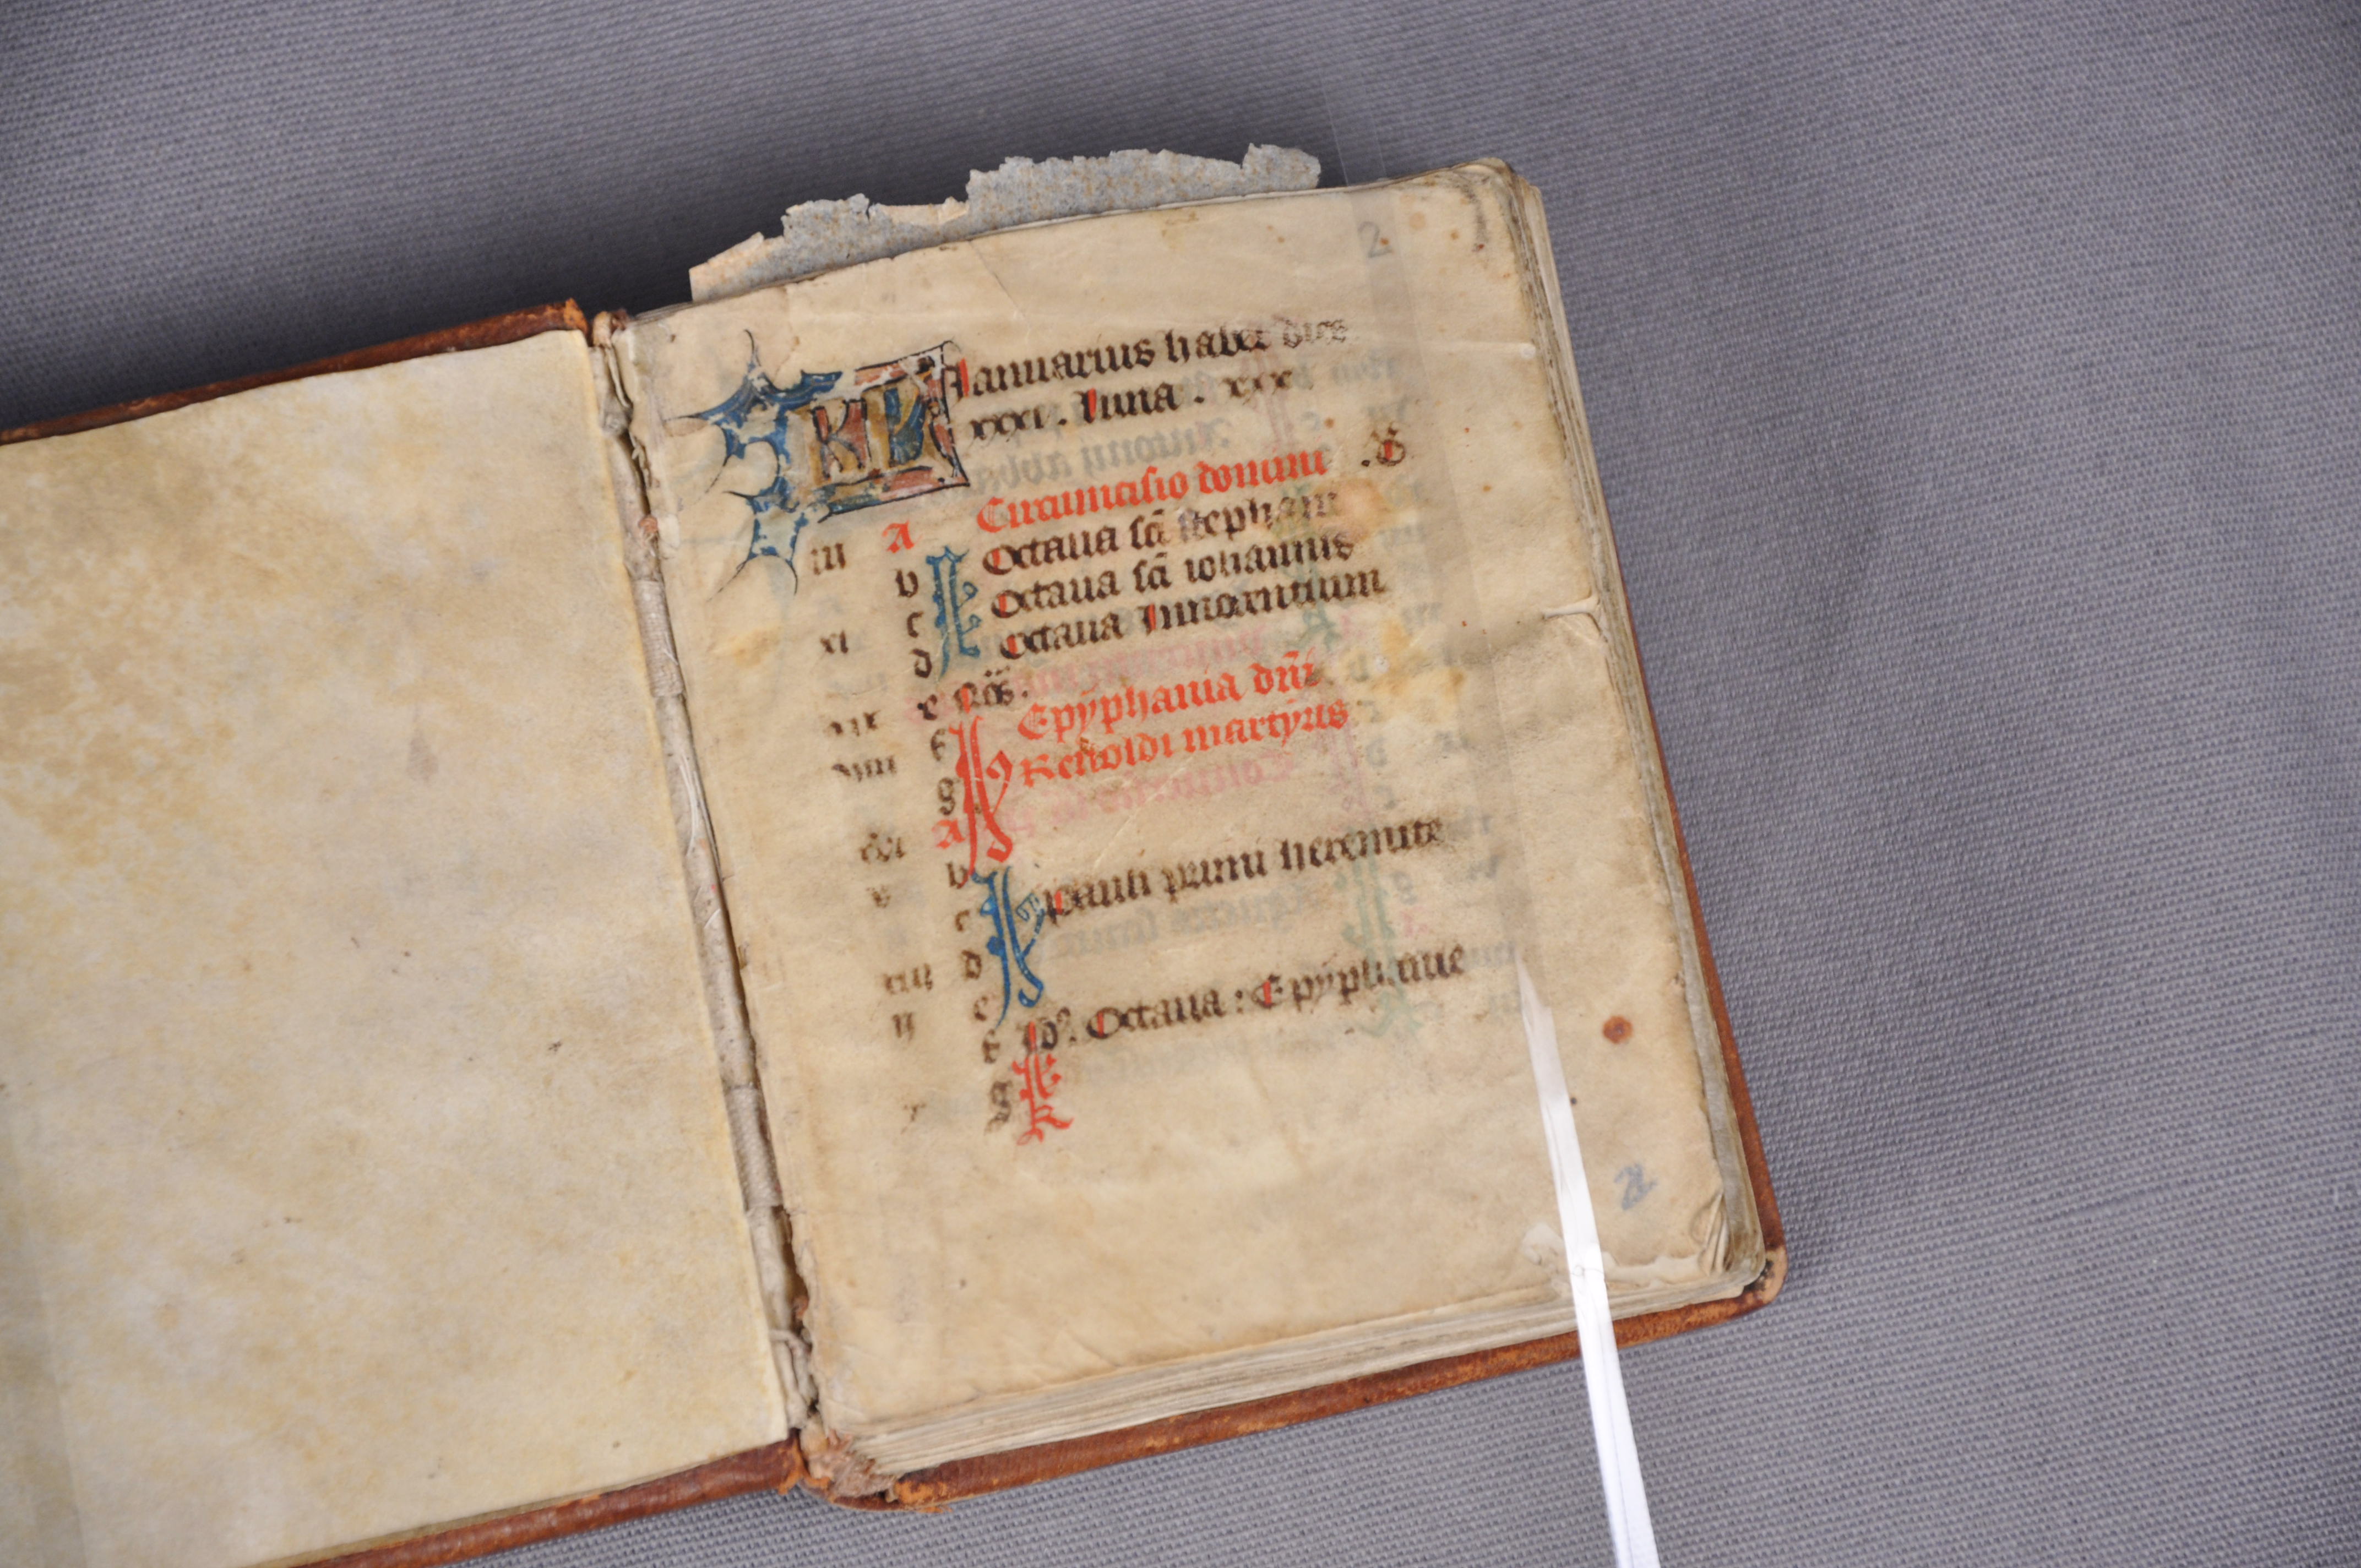 2
KL Ianuarius habet dies
xxxi. luna. xxx
iii A Circumcisio domini
b Octaua sci stephani
xi c Octaua sci iohannis
d Octaua Innocentium
e Nōs.
f Epyphania dni
g Reinoldi martyris
A
v b
c pauli primi heremite
xiii d
ii e
f id9. Octaua : Epyphanie
x g
2